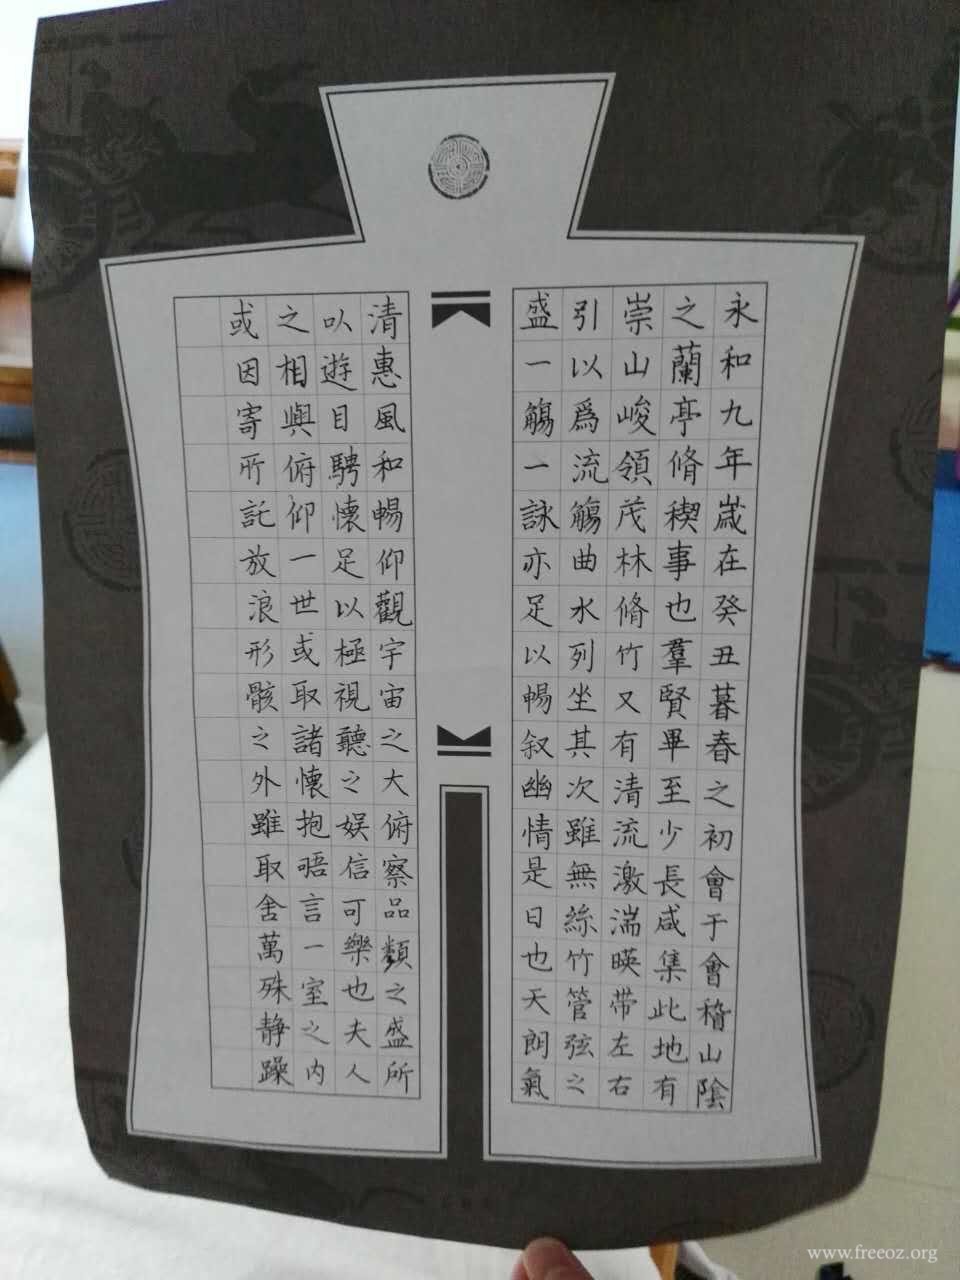 永和九年歲在癸丑暮春之初會于會稽山陰
之蘭亭脩稧事也羣賢畢至少長咸集此地有
崇山峻領茂林脩竹又有清流激湍暎带左右
引以為流觴曲水列坐其次雖無絲竹管弦之
盛一觴一詠亦足以暢叙幽情是日也天朗氣
清惠風和暢仰觀宇宙之大俯察品類之盛所
以遊目騁懷足以極視聽之娱信可樂也夫人
之相與俯仰一世或取諸懷抱晤言一室之内
或因寄所託放浪形骸之外雖取舍萬殊静躁
www.freeoz.org